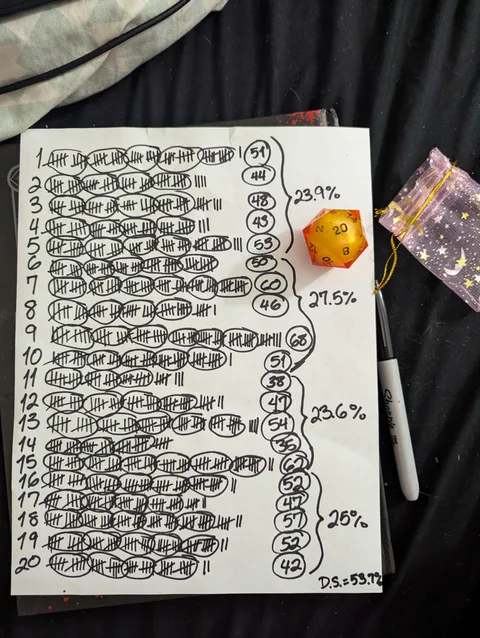 1 51
2 44
3 48
4 43
5 53
23.9%
6 50
7 60
8 46
9 68
10 51
27.5%
11 38
12 47
13 54
14 35
15 62
23.6%
16 52
17 47
18 57
19 52
20 42
25%
D.S.=53.72
20
8
Sharpie